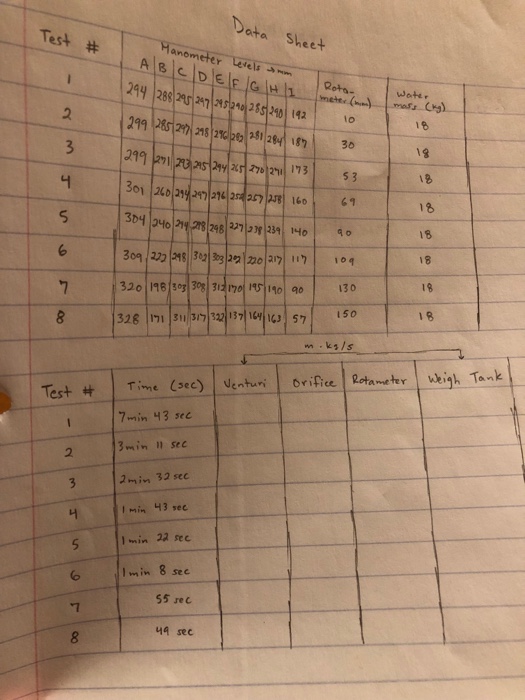 Data Sheet
Test # Manometer Levels → mm
A B C D E F G H I Rota-meter (mm) Water mass (kg)
1 294 288 295 297 295 290 285 290 192 10 18
2 299 285 297 298 296 282 281 284 187 30 18
3 299 271 293 295 294 265 270 271 173 53 18
4 301 260 294 297 296 257 258 160 69 18
5 304 240 294 298 298 227 239 140 90 18
6 309 222 298 302 303 202 220 217 117 109 18
7 320 198 303 308 312 170 195 190 90 130 18
8 328 171 311 317 322 137 164 163 57 150 18
m · kg/s
Test # Time (sec) Venturi Orifice Rotameter Weigh Tank
1 7 min 43 sec
2 3 min 11 sec
3 2 min 32 sec
4 1 min 43 sec
5 1 min 22 sec
6 1 min 8 sec
7 55 sec
8 49 sec